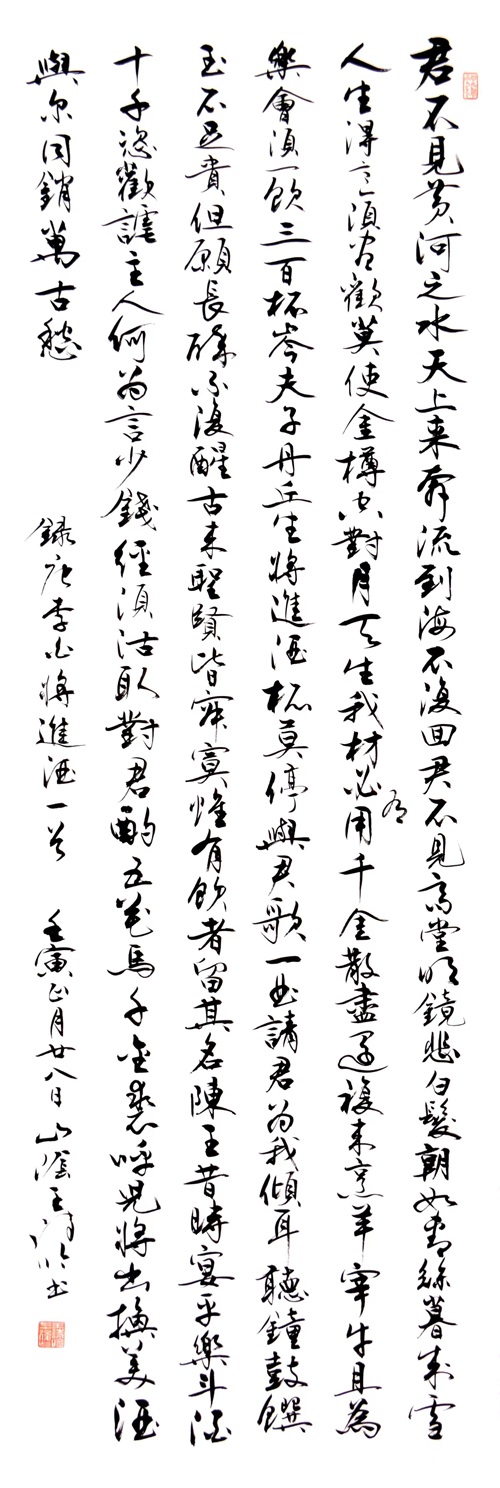 君不見黄河之水天上来奔流到海不復回君不見高堂明鏡悲白髮朝如青絲暮成雪
人生得意須盡歡莫使金樽空對月天生我材必有用千金散盡還複来烹羊宰牛且為
樂會須一飲三百杯岑夫子丹丘生將進酒杯莫停與君歌一曲請君为我傾耳聽鐘鼓饌
玉不足貴但願長醉不復醒古来聖賢皆寂寞惟有飲者留其名陳王昔時宴平樂斗酒
十千恣歡謔主人何为言少錢經須沽取對君酌五花馬千金裘呼兒將出換美酒
與尔同銷萬古愁
錄唐李白將進酒一首 壬寅正月廿八日山陰王